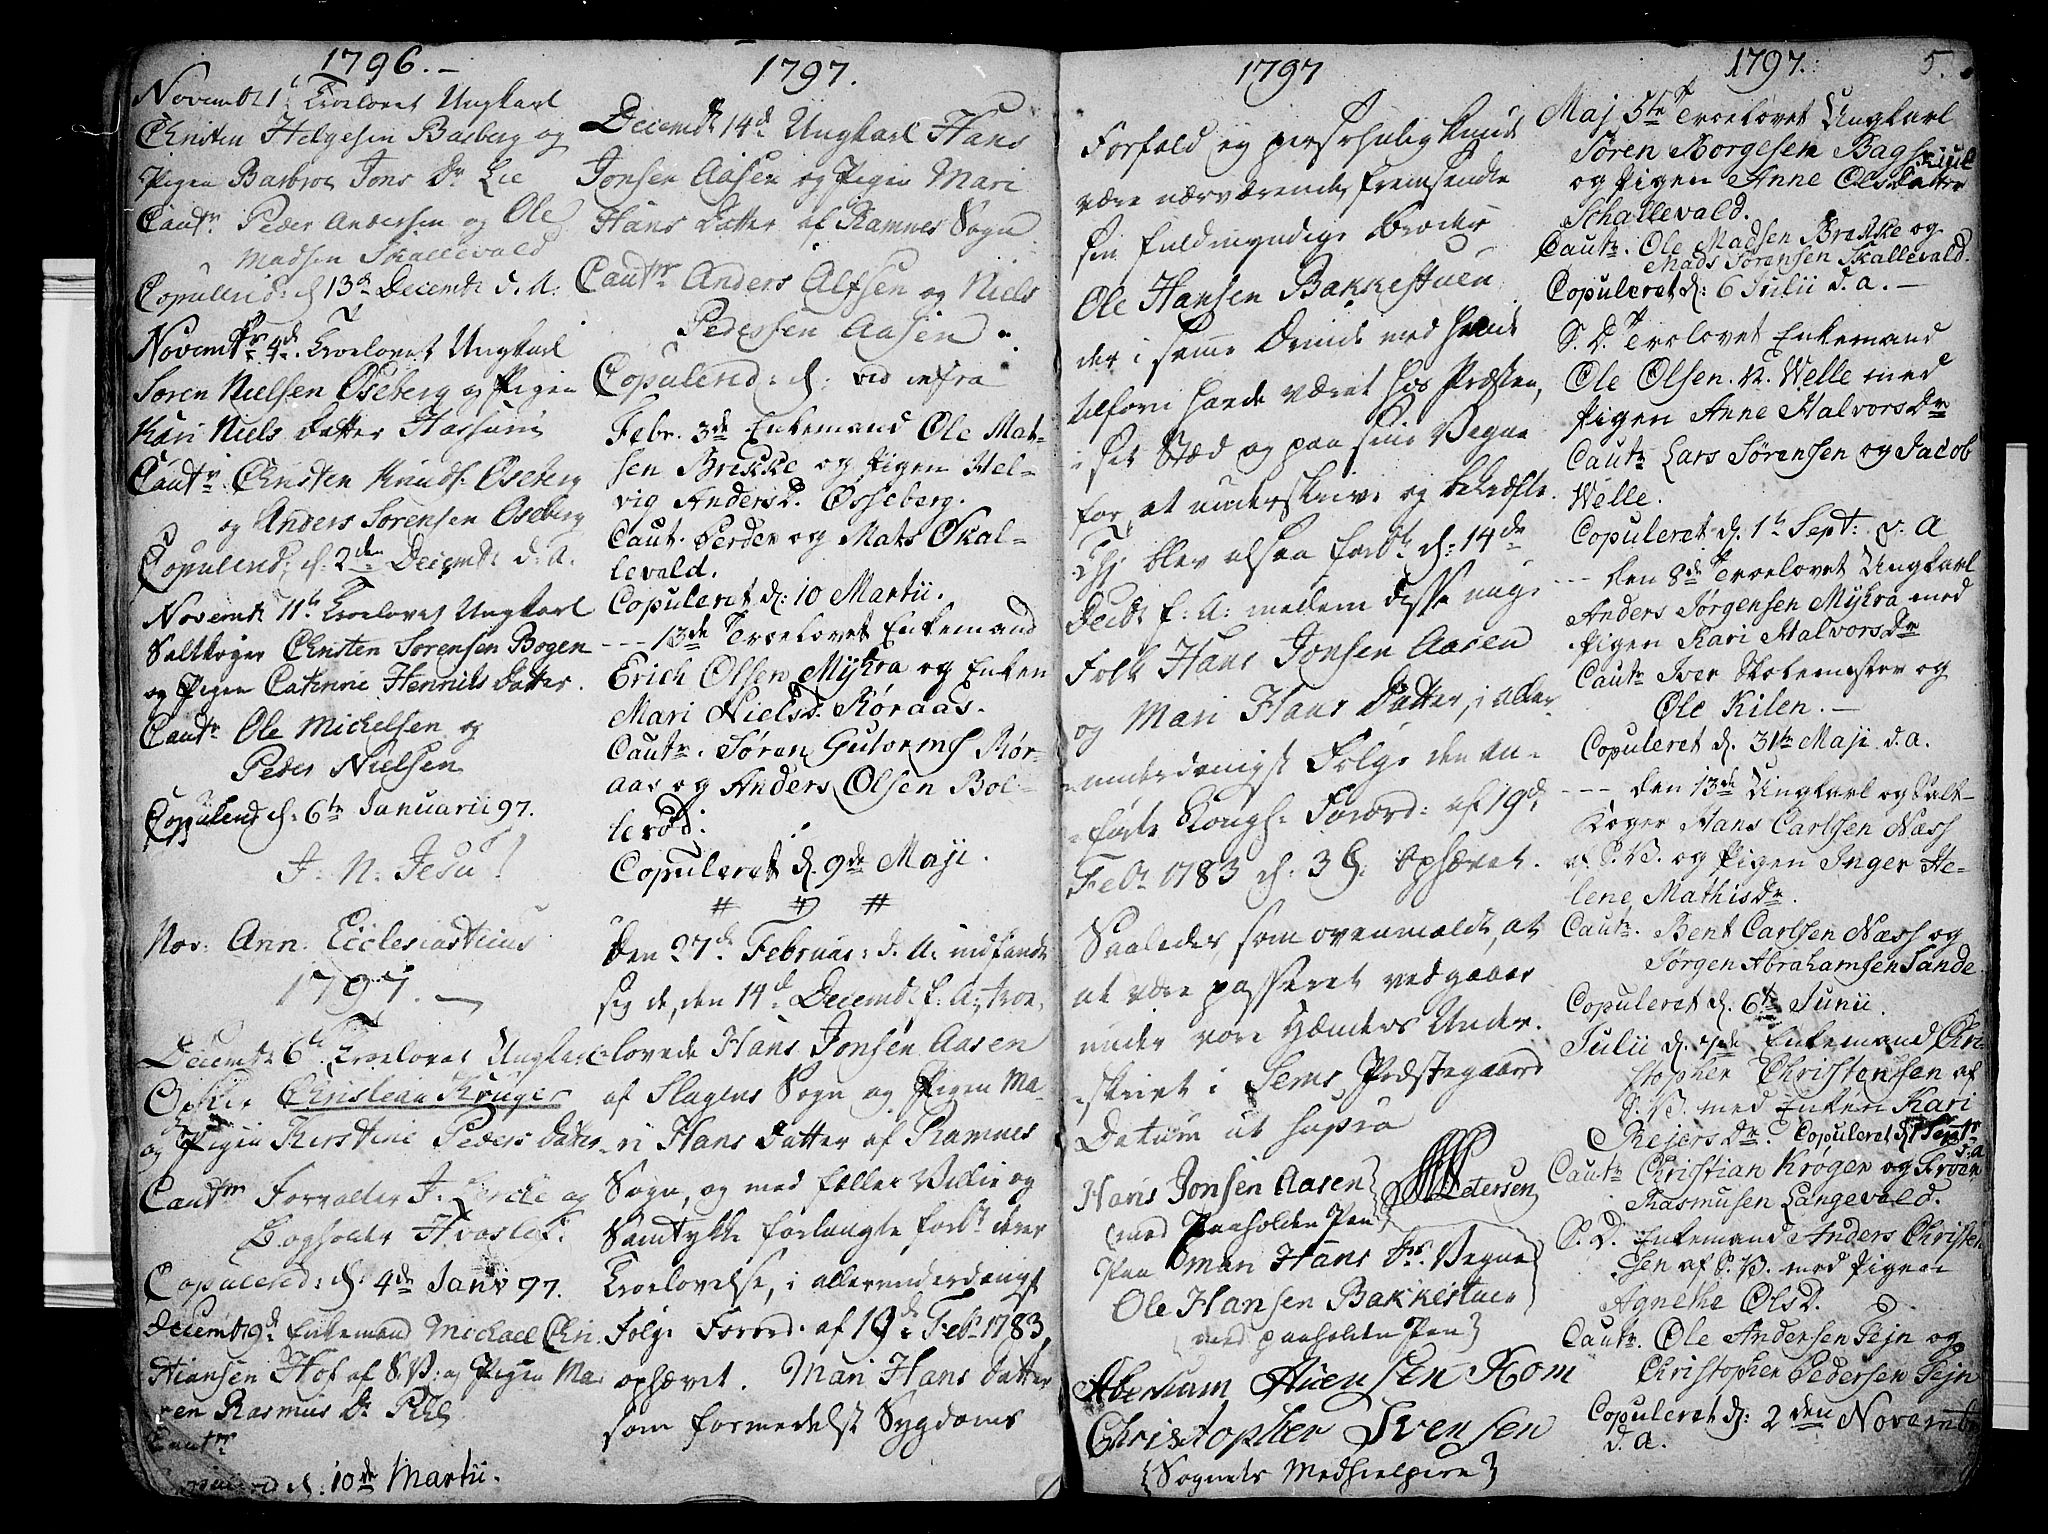 1796.
Novembr 1te Troelovet Ungkarl
Christen Helgesen Basberg og
Pigen Barbroe Jons Dr Lie
Cautr Peder Andersen og Ole
Madsen Skallevald
Copulerid: d. 13de Decembr d. A:
Novembr 4de Troelovet Ungkarl
Søren Nielsen Oseberg og Pigen
Kari Niels Datter Hassum
Cautr Christen Knuds: Oseberg
og Anders Sørensen Oseberg
Copulerid: d. 2den Decembr d. A.
Novembr 11te Troelovet Ungkarl
Saltkoger Christen Sørensen Bogen
og Pigen Catrine Henrichs Datter.
Cautr Ole Michelsen og
Peder Nielsen
Copulerid d: 6te Januarii 97.
I. N. Jesu!
Nov: Ann. Ecclesiasticus
1797.
Decembr 6te Troelovet Ungkarl
Christian Krøger
og Pigen Kirstine Peders Datter
Cautr Forvalter J. og
Bogholder
Copulerid: d: 4de Janv 97.
Decembr 9de Enkemand Michael Chri-
stiansen Hof af S.V: og Pigen Ma-
ren Rasmus Dr
Cautr
d. 10de Martii.
1797.
Decembr 14de Ungkarl Hans
Jonsen Aasen og Pigen Mari
Hans Datter af Ramnes Sogn
Cautr Anders Alfsen og Niels
Pedersen Aasen
Copulerid: d: vid infra
Febr. 3de Enkemand Ole Mat-
sen Brekke og Pigen Hel-
vig AndersD. Osseberg.
Caut. Peder og Mats Skal-
levald.
Copuleret d: 10 Martii.
--- 13de Troelovet Enkemand
Erich Olsen Myhra og Enken
Mari Nielsd. Røraas.
Cautr. Søren Gutormsen Rør-
aas og Anders Olsen Bol-
lerød.
Copuleret d. 9de Maji.
# # #
Den 27de Februar: d. A: indfandt
sig de, den 14de Decembr f: A: troe-
lovede Hans Jonsen Aasen
af Slagens Sogn og Pigen Ma-
ri Hans Datter af Ramnes
Sogn, og med fælles Villie og
Samtykke forlangte forbte deres
Troelovelse, i allerunderdanigst
Følge Forord. af 19de Febr 1783,
ophævet. Mari Hans Datter
som formedelst Sygdoms
1797
Forfald ej personlig kunde
være nærværende, fremsendte
sin fuldmyndige Broder
Ole Hansen Bakkestuen
der i samme Ærinde med hende
tilforn havde været hos Præsten,
i det Stæd og paa sine Vegne
for at underskrive og bekræfte.
Thj blev altsaa forbte d: 14de
Decbr f: A: mellem disse unge
Folk Hans Jonsen Aasen
og Mari Hans Datter, i aller-
underdanigst Følge den an-
førte Kongl: Forord: af 19de
Febr 1783 d. 3 §: ophævet.
Saaledes, som ovenmeldt, at
at være passeret vedgaaes
under vore Hænders Under-
skrivt i Sems Præstegaard
Datum ut supra
Hans Jonsen Aasen
(med paaholden Pen)
Petersen
Paa Mari Hans Drs Vegne
Ole Hansen Bakkestuen
(med paaholden Pen)
Aberham Auensen Rom
Christopher Ivensen
{Sognets Medhielpere}
1797. 5.
Maj 5te Troelovet Ungkarl
Søren Borgesen Bagskiul
og Pigen Anne Olsdatter
Schallevald.
Cautr. Ole Madsen Brekke og
Mads Sørensen Skallevald.
Copuleret d: 6 Julii d. a. —
S. D. Trolovet Enkemand
Ole Olsen N. Welle med
Pigen Anne HalvorsDr
Cautr Lars Sørensen og Jacob
Welle.
Copuleret d. 1te Sept: d. A
--- den 8de Troelovet Ungkarl
Anders Jørgensen Myhra med
Pigen Kari HalvorsDr
Cautr Iver Skolemester og
Ole Kilen. —
Copuleret d. 31te Maji d. a.
--- den 13de Ungkarl og Salt-
koger Hans Carlsen Næss
af S. V. og Pigen Inger He-
lene MathisDr.
Cautr. Bent Carlsen Næss og
Jørgen Abrahamsen Sande
Copuleret d. 6te Junii.
Julii d. 7de Enkemand Chri-
stopher Christensen af
S. V. med Enken Kari
ReiersDr. Copuleret d. 1 Septr
d. a
Cautr Christian Krøger og Iver
Rasmusen Langevald.
S. D. Enkemand Anders Christen-
sen af S. V. med Pigen
Agnethe OlsD.
Cautr. Ole Andersen Fejn og
Christopher Pedersen Fejn
Copuleret d: 2den Novembr
d. a.